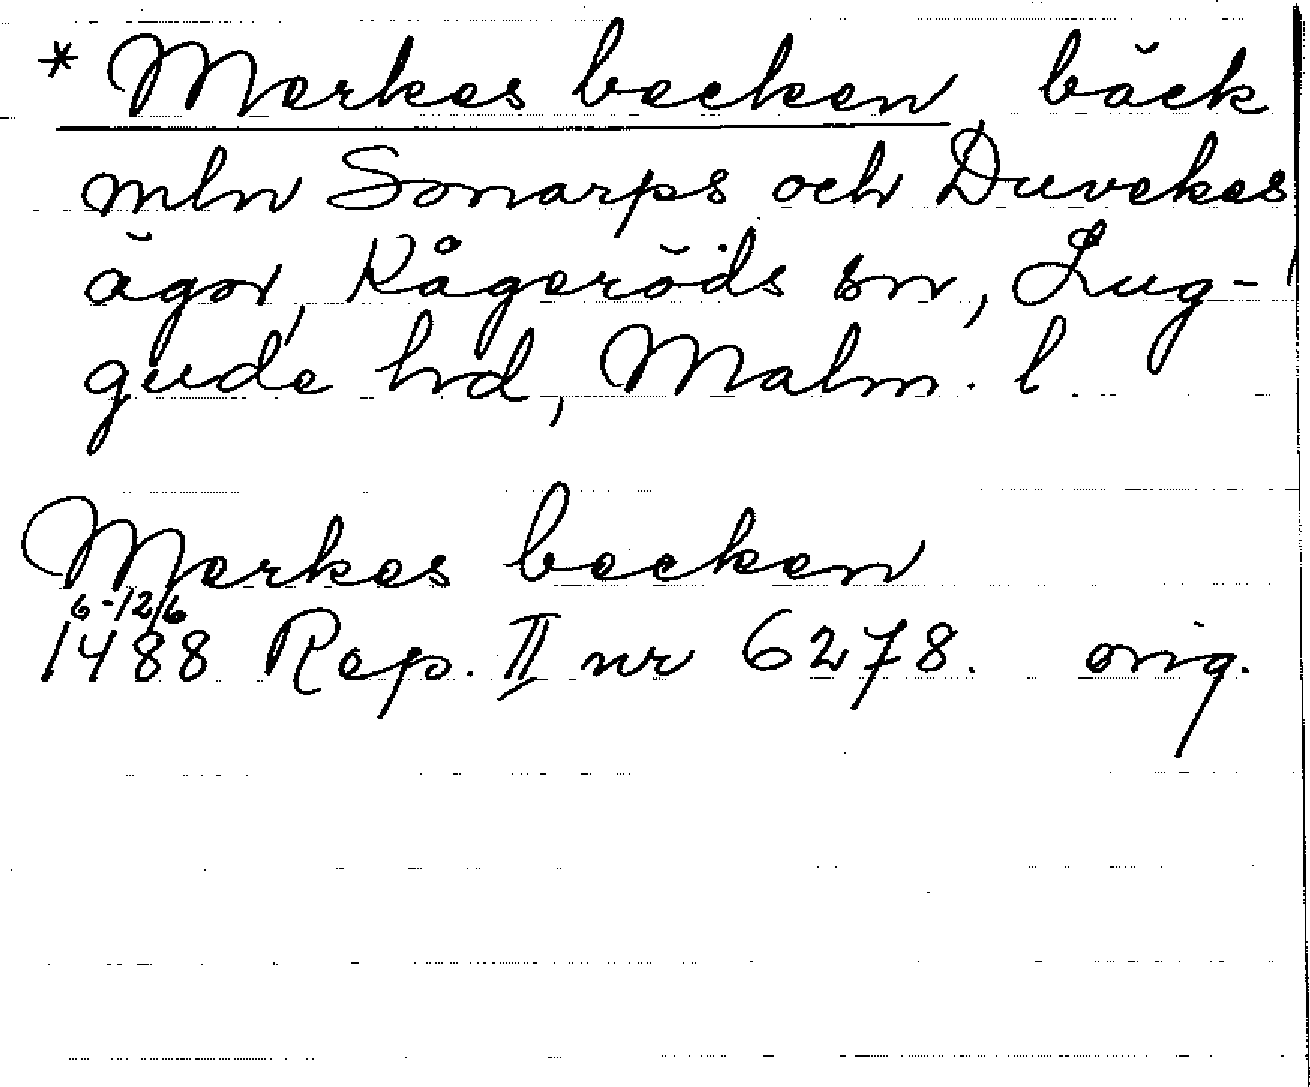 * Merkes becken bäck
mln Sonarps och Duvekes
ägor, Kågeröds sn, Lug-
gude hd, Malm. l
Merkes becken
6-12/6
1488 Rep. II nr 6278. orig.